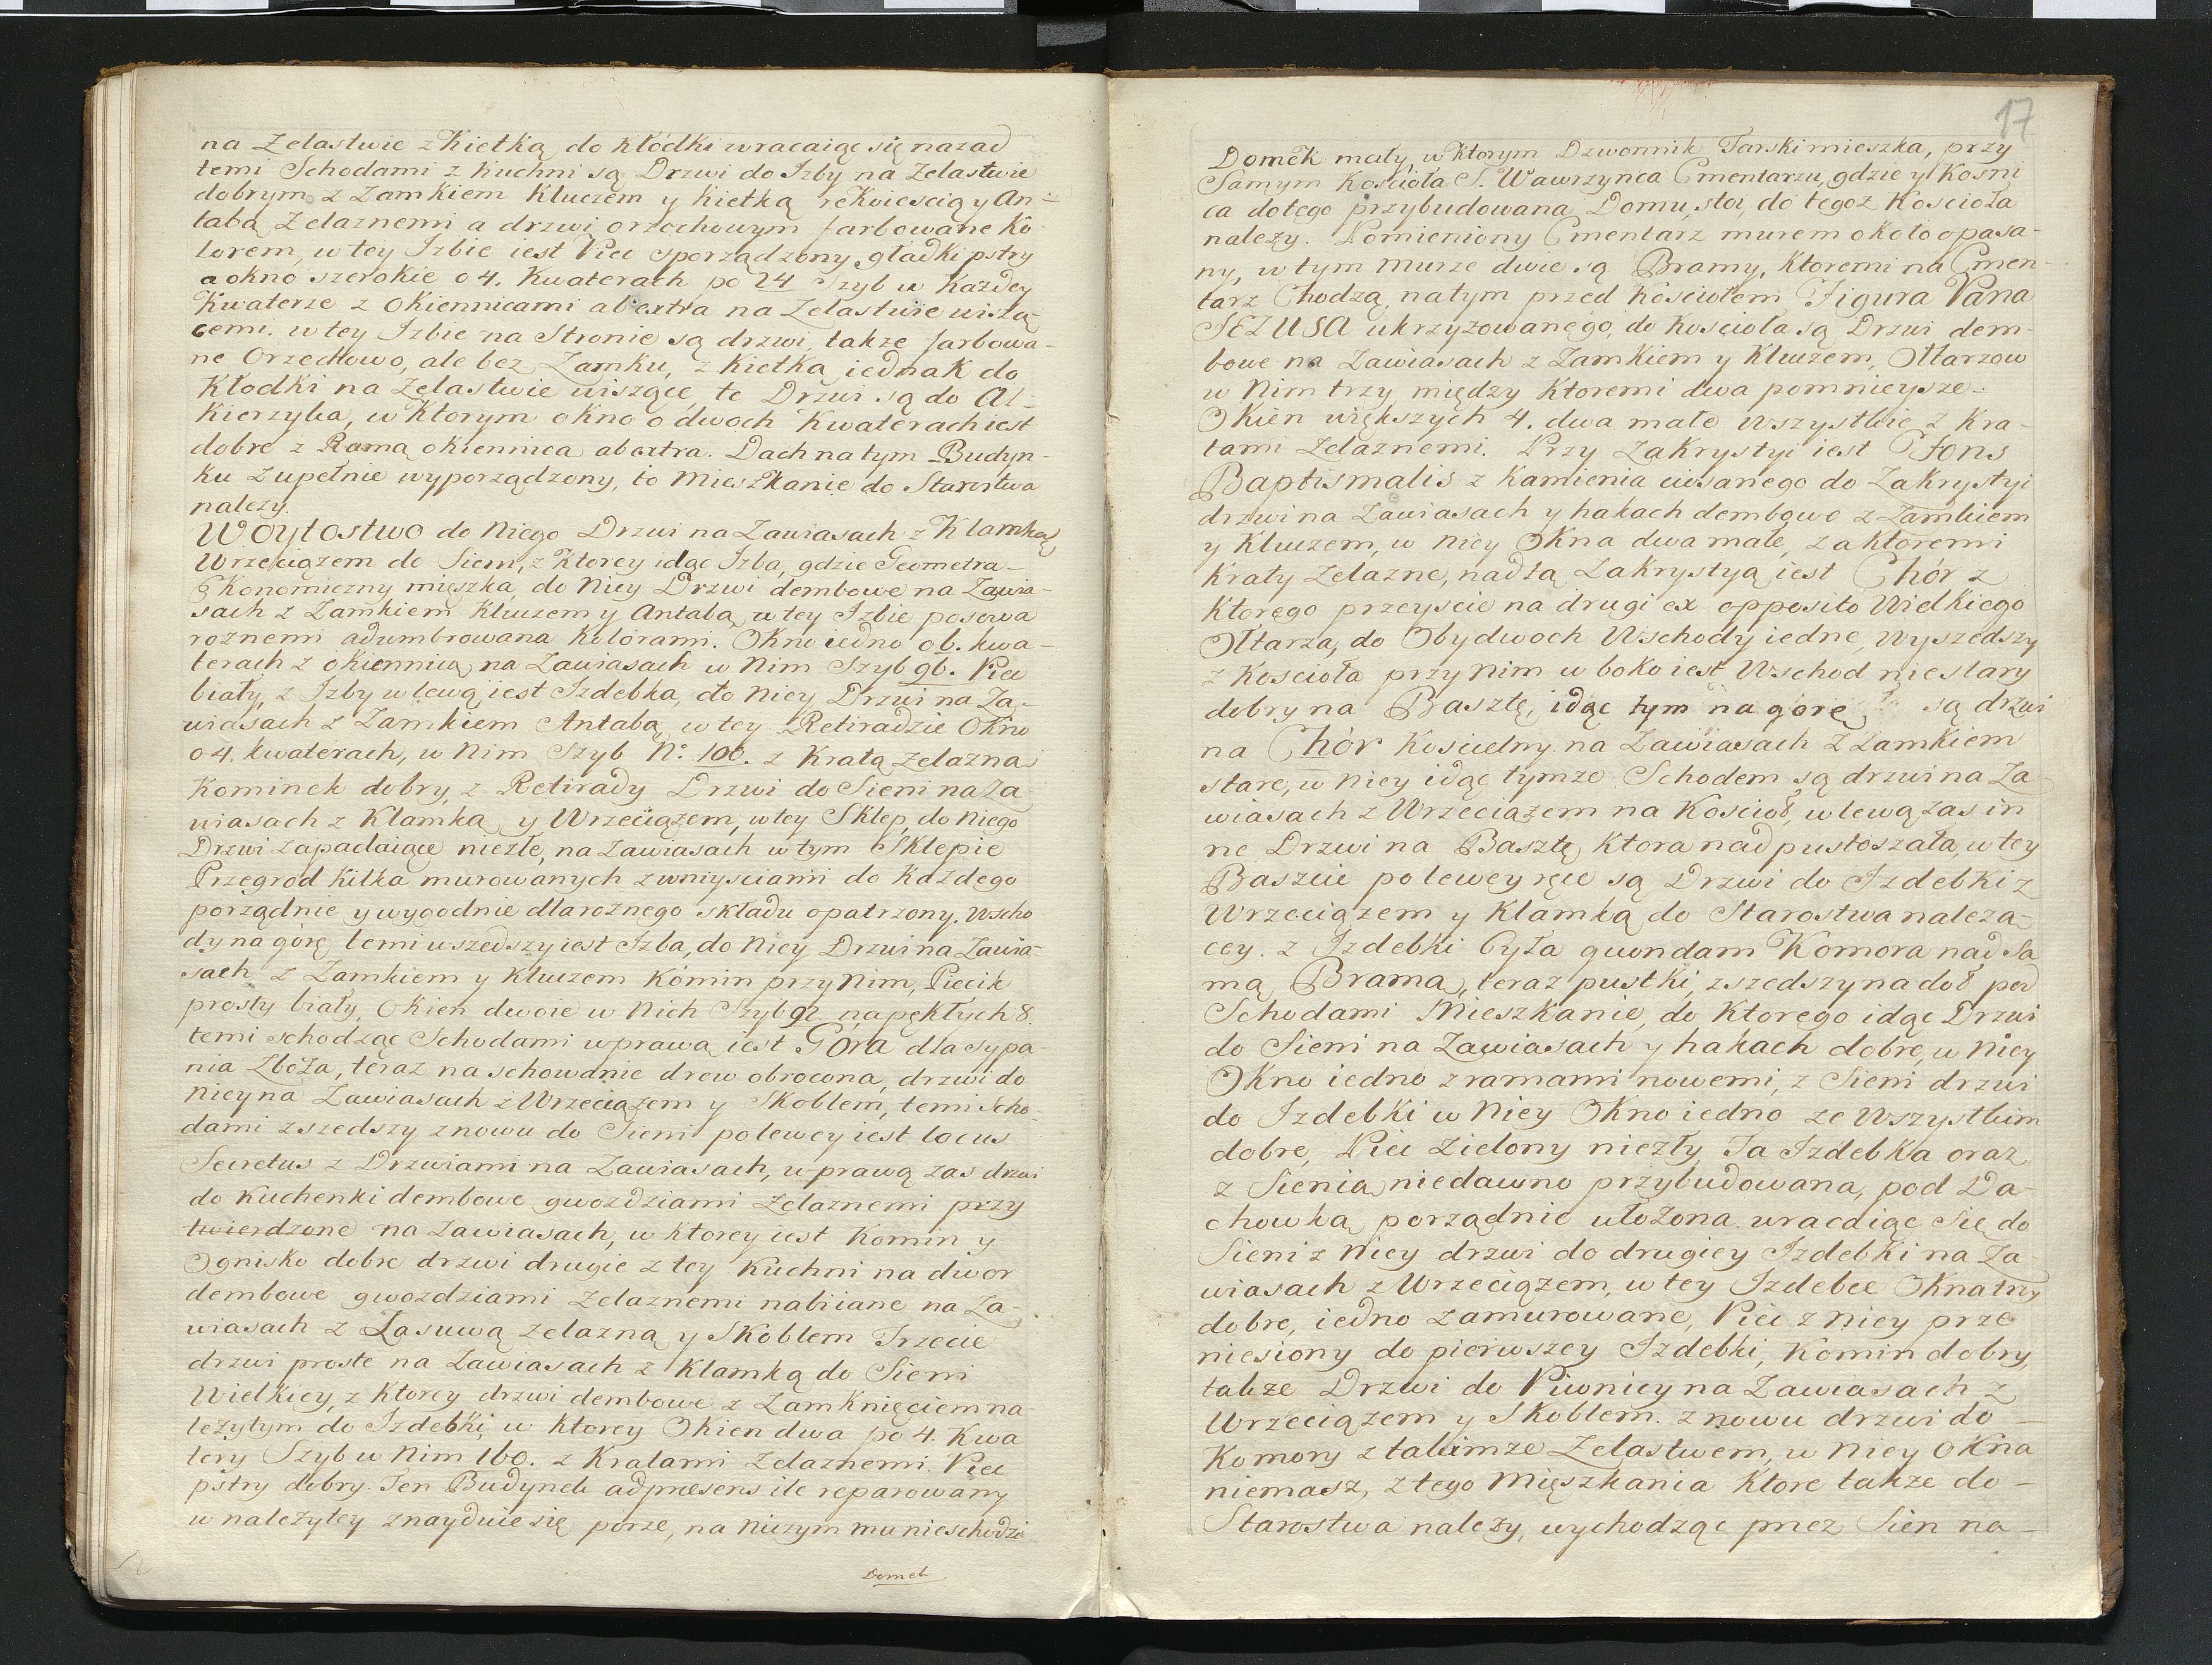 na Zelastwie z Kietką do kłódki wracaiąc się nazad
temi Schodami z kuchni są Drzwi do Izby na Zelastwie
dobrym z Zamkiem Kluczem y kietką rekoiescią y An-
tabą Zelaznemi a drzwi orzochowym farbowane Ko-
lorem, w tey Izbie iest Piec sporządzony gładki pstry
a okno szerokie o 4. Kwaterach po 24 Szyb w Kazdey
Kwaterze z okiennicami ab extra na Zelastwie wiszą-
cemi. w tey Izbie na Stronie są drzwi, takze farbowa-
ne Orzechowo, ale bez Zamku, z kietką iednak do
Kłodki na Zelastwie wiszące, te Drzwi są do Al-
kierzyka, w Ktorym okno o dwoch Kwaterach iest
dobre z Ramą okiennica abextra. Dach na tym Budyn-
ku Zupełnie wyporządzony, to Mieszkanie do Starostwa
nalezy.
Woytostwo do Niego Drzwi na Zawiasach z Klamką
Wrzeciązem do Sieni, z Ktorey idąc Izba, gdzie Geometra
Ekonomiczny mięszka, do Niey Drzwi dembowe na Zawia-
sach z Zamkiem Kluczem y Antabą, w tey Izbie posowa
roznemi adumbrowana kolórami. Okno iedno o 6. kwa-
terach z okiennicą na Zawiasach w Nim Szyb 96. Piec
biały, z Izby w lewą iest Izdebka, do Niey Drzwi na Za-
wiasach z Zamkiem Antabą, w tey Retiradzie Okno
o 4. kwaterach, w Nim Szyb N° 100. z Kratą zelazną
Kominek dobry, z Retirady Drzwi do Sieni na Za-
wiasach z Klamką y Wrzeciązem, w tey Sklep, do Niego
Drzwi zapadaiące niezłe, na Zawiasach w tym Sklepie
Przegrod kilka murowanych z wniysciami do kazdego
porządnie y wygodnie dla roznego składu opatrzony. Wscho-
dy na górę temi wszedszy iest Izba, do Niey Drzwi na Zawia-
sach z Zamkiem y Kluczem Kómin przy Nim, Piecik
prosty biały, Okien dwoie w Nich Szyb 92 napękłych 8.
temi schodząc Schodami w prawą iest Góra dla sypa-
nia Zboża, teraz na schowanie drew obrocona, drzwi do
Niey na Zawiasach z Wrzeciązem y Skoblem, temi Scho-
dami zszedszy znowu do Sieni po lewey iest locus
Secretus z Drzwiami na Zawiasach, w prawą zas drzwi
do Kuchenki dembowe gwozdziami Zelaznemi przy
twierdzone na Zawiasach, w ktorey iest Komin y
Ognisko dobre drzwi drugie z tey Kuchni na dwor
dembowe gwozdziami Zelaznemi nabiiane na Za-
wiasach z Zasuwą zelazną y Skoblem Trzecie
drzwi proste na Zawiasach z Klamką do Sieni
Wielkiey, z Ktorey drzwi dembowe z Zamknięciem na
lezytym do Izdebki, w ktorey Okien dwa po 4. Kwa
tery Szyb w Nim 160. z Kratami Zelaznemi. Piec
pstry dobry. Ten Budynek adpraesens ile reparowany
w nalezytey znayduie się porze, na niczym mu nieschodzi
Domek
17
Domek mały, w Ktorym Dzwonnik Tarski mieszka, przy
Samym Kościoła S. Wawrzynca Cmentarzu, gdzie y Kosni
ca do tego przybudowana Domu, stoi, do tegoz Kościoła
nalezy. Pomieniony Cmentarz murem około opasa-
ny, w tym Murze dwie są Bramy, Ktoremi na Cmen-
tarz Chodzą, na tym przed Kościołem Figura Pana
JEZUSA ukrzyzowanego, do Kościoła są Drzwi dem-
bowe na Zawiasach z Zamkiem y Kluczem, Ołtarzow
w Nim trzy między Ktoremi dwa pomnieysze.
Okien większych 4. dwa małe wszystkie z Kra-
tami Zelaznemi. Przy Zakrystyi iest Fons
Baptismalis z Kamienia ciosanego do Zakrystyi
drzwi na Zawiasach y hakach dembowe z Zamkiem
y Kluczem, w Niey Okna dwa małe, za ktoremi
Kraty Zelazne, nad tą Zakrystyą iest Chór z
Ktorego przeyscie na drugi ex opposito Wielkiego
Ołtarza, do Obydwoch Wschody iedne, wyszedszy
z Kościoła przy Nim w boko iest Wschod nie stary
dobry na Basztę, idąc tym na górę są drzwi
na Chór Koscielny na Zawiasach z Zamkiem
stare, w Niey idąc tymze Schodem są drzwi na Za
wiasach z Wrzeciązem na Kościoł, w lewą zas in
ne Drzwi na Basztę Ktora nadpustoszała, w tey
Baszcie po lewey ręce są Drzwi do Izdebki z
Wrzeciązem y Klamką do Starostwa naleza-
cey. z Izdebki była quondam Komora nad Sa
mą Bramą, teraz pustki, zszedszy na doł pod
Schodami Mieszkanie, do Ktorego idąc Drzwi
do Sieni na Zawiasach y hakach dobre, w Niey
Okno iedno z ramami nowemi, z Sieni drzwi
do Izdebki w Niey Okno iedno ze Wszystkim
dobre, Piec zielony niezły Ta Izdebka oraz
z Sienią niedawno przybudowana, pod Da-
chowką porządnie ułożona. wracaiąc Się do
Sieni z Niey drzwi do drugiey Izdebki na Za-
wiasach z Wrzeciązem, w tey Izdebce Okna trzy
dobre, iedno zamurowane, Piec z Niey prze
niesiony do pierwszey Izdebki, Komin dobry,
takze Drzwi do Piwnicy na Zawiasach z
Wrzeciązem y Skoblem. znowu drzwi do
Komory z takimze Zelastwem, w Niey okna
niemasz, z tego Mięszkania Ktore takze do
Starostwa nalezy, wychodząc przez Sień na